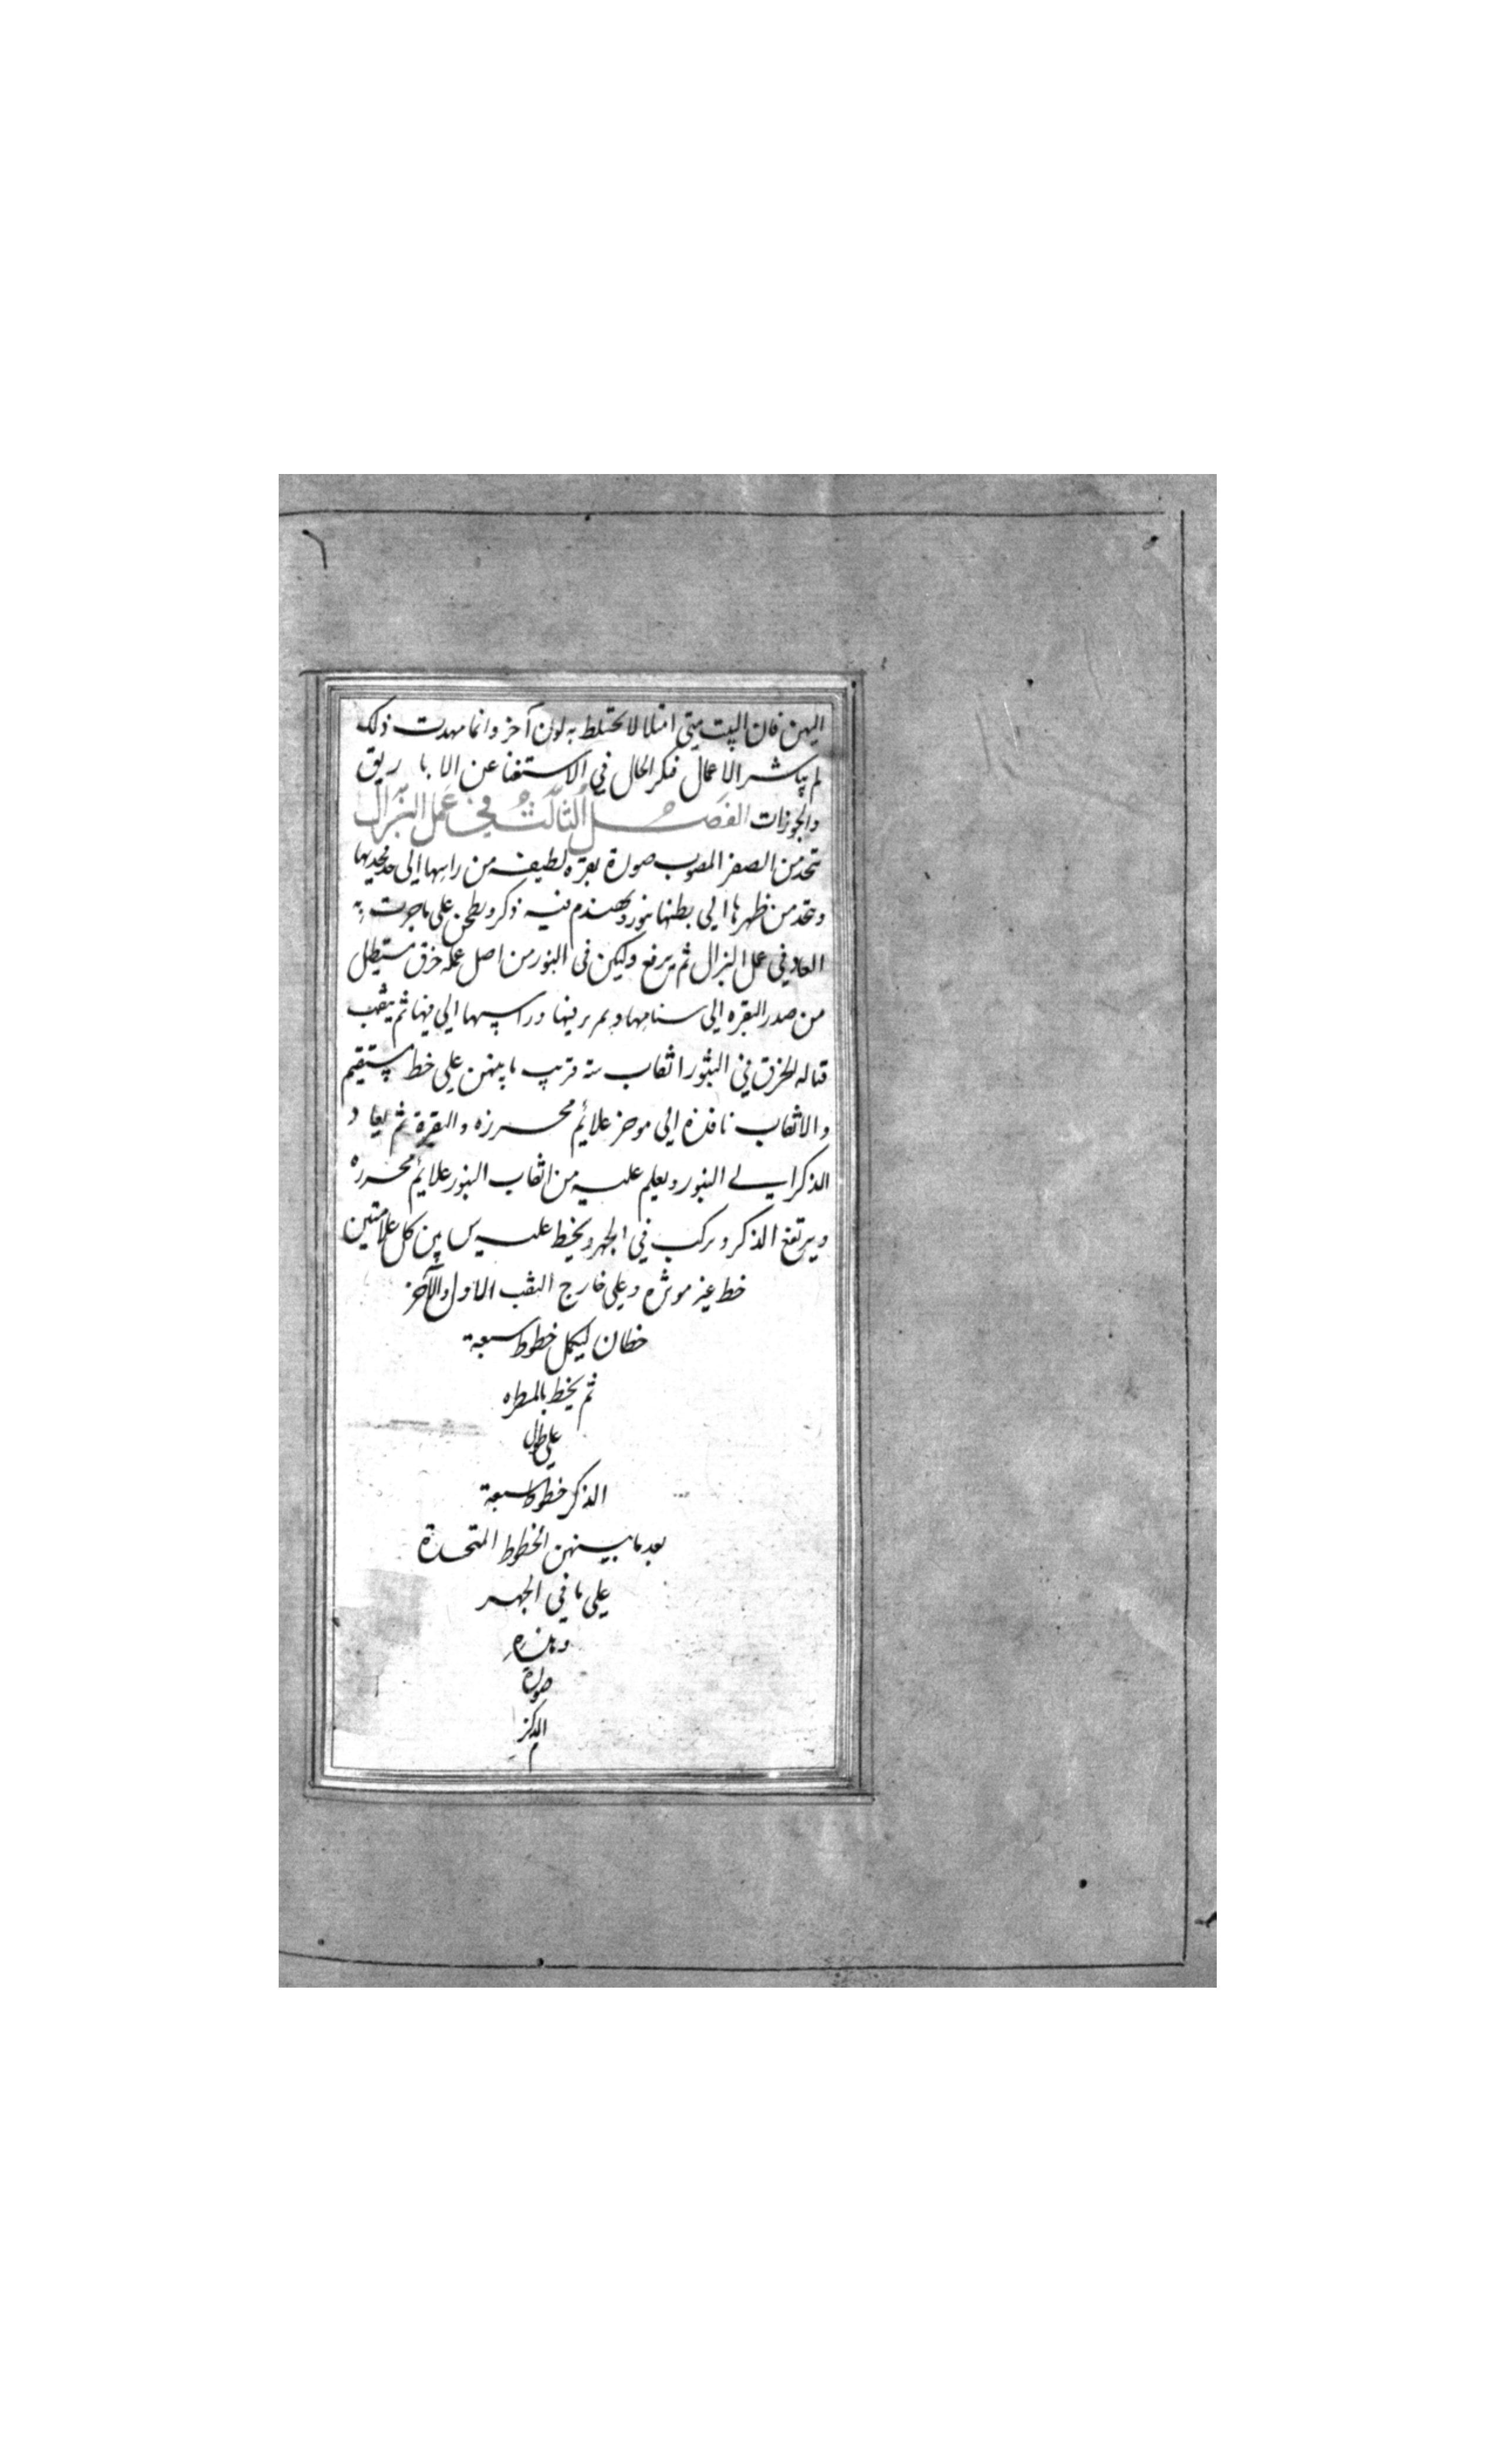 اليهن فان البيت متى امتلا لا يختلط به لون آخر وانما مهدت ذلك
لم يباشر الاعمال فنكر الحال فى الاستغنا عن الابا ريق
والجوزات الفصل الثالث في عمل البزال
تتخذ من الصفر المصبوب صورة بقره لطيفه من راسها الى حد
ويتخذ من ظهرها الى بطنها بنور ويهندم فيه ذكر ويطحن على ما جرت به
العاد فى عمل البزال ثم يرفع وليكن فى البنور من اصل عمله خرق مستطيل
من صدر البقره الى سنامها ويمر برقبتها وراسها الى فيها ثم يثقب
قباله الخرق فى البثور اثقاب سته قريب ما بينهن على خط مستقيم
والاثقاب نافذة الى موخر علائم محرزه والبقرة ثم يعا د
الذكر الى البنور ويعلم عليه من اثقاب البنور علائم محرره
ويرتفع الذكر ويركب فى الجهر ويخط عليه س بين كل علامتين
خط غير موثره وعلى خارج الثقب الاول والآخر
خطان ليكمل خطوط سبعة
ثم يخط بالمسطره
على طول
الذكر خطوط سبعة
بعد ما بينهن الخطوط المتحدة
على ما فى الجهر
وهذه
صورة
الذكر